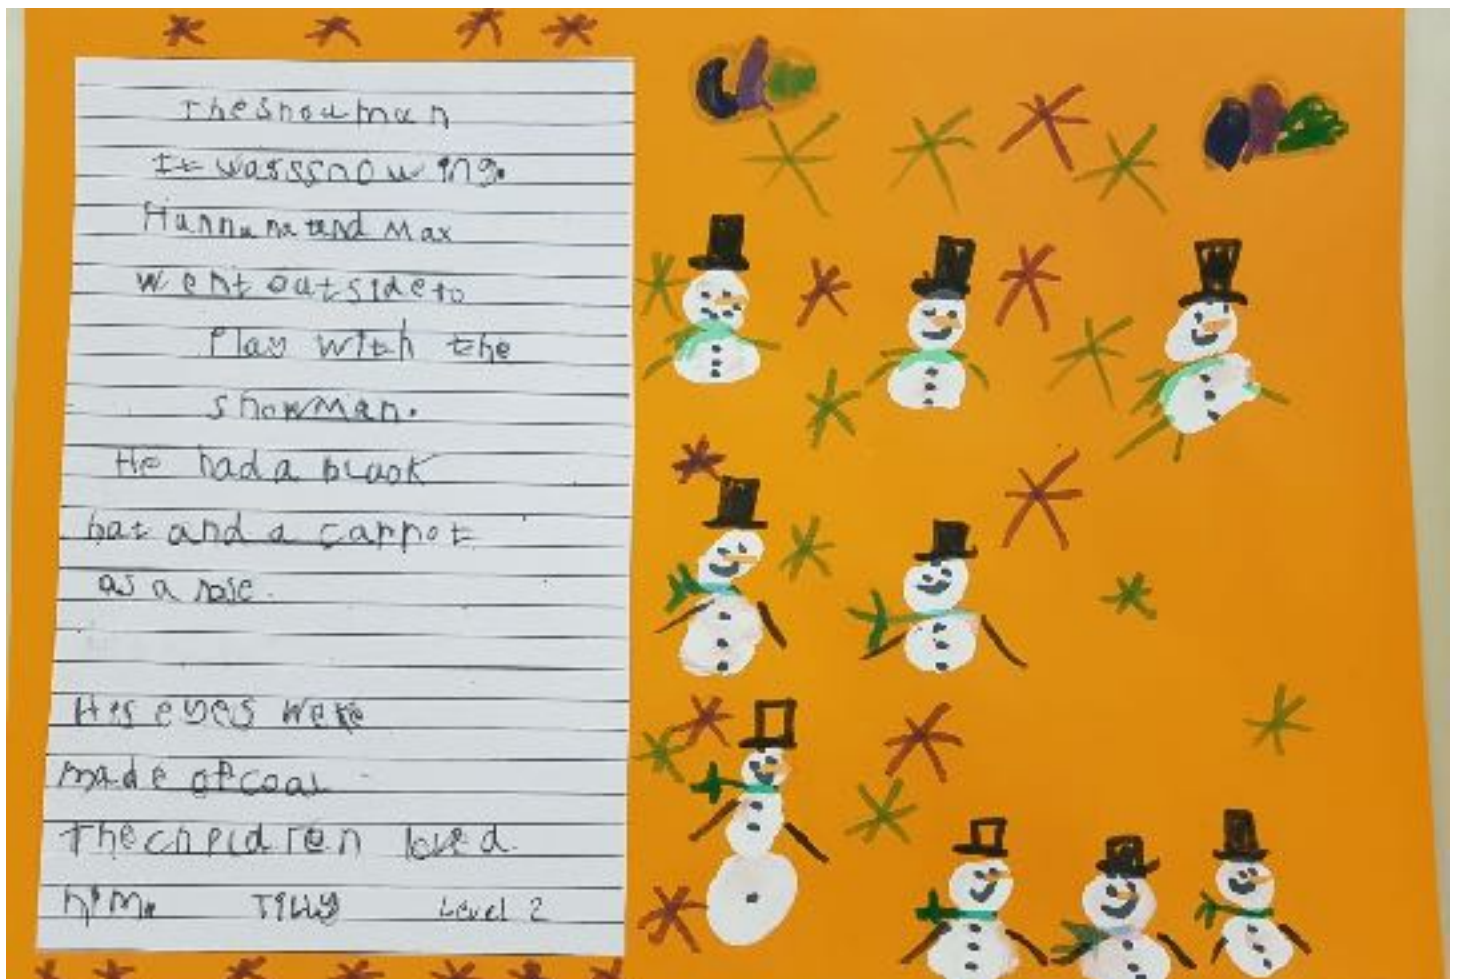 The snowman
It was snowing.
Hannah and Max
went outside to
Play with the
snowman.
He had a black
hat and a carrot
as a nose.
His eyes were
made of coal
The children loved
him. TILLY Level 2